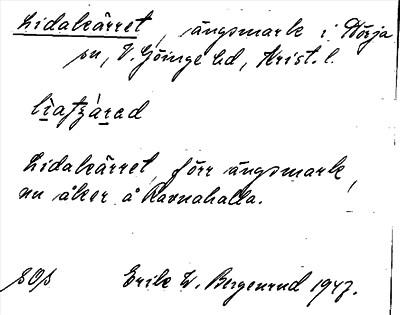 Lidakärret, ängsmark i Nörja
sn, V. Göinge hd, Krist. l.
Lidakärret, förr ängsmark,
nu åker å Ravnahalla.
SOS Erik W. Bergenrud 1947.